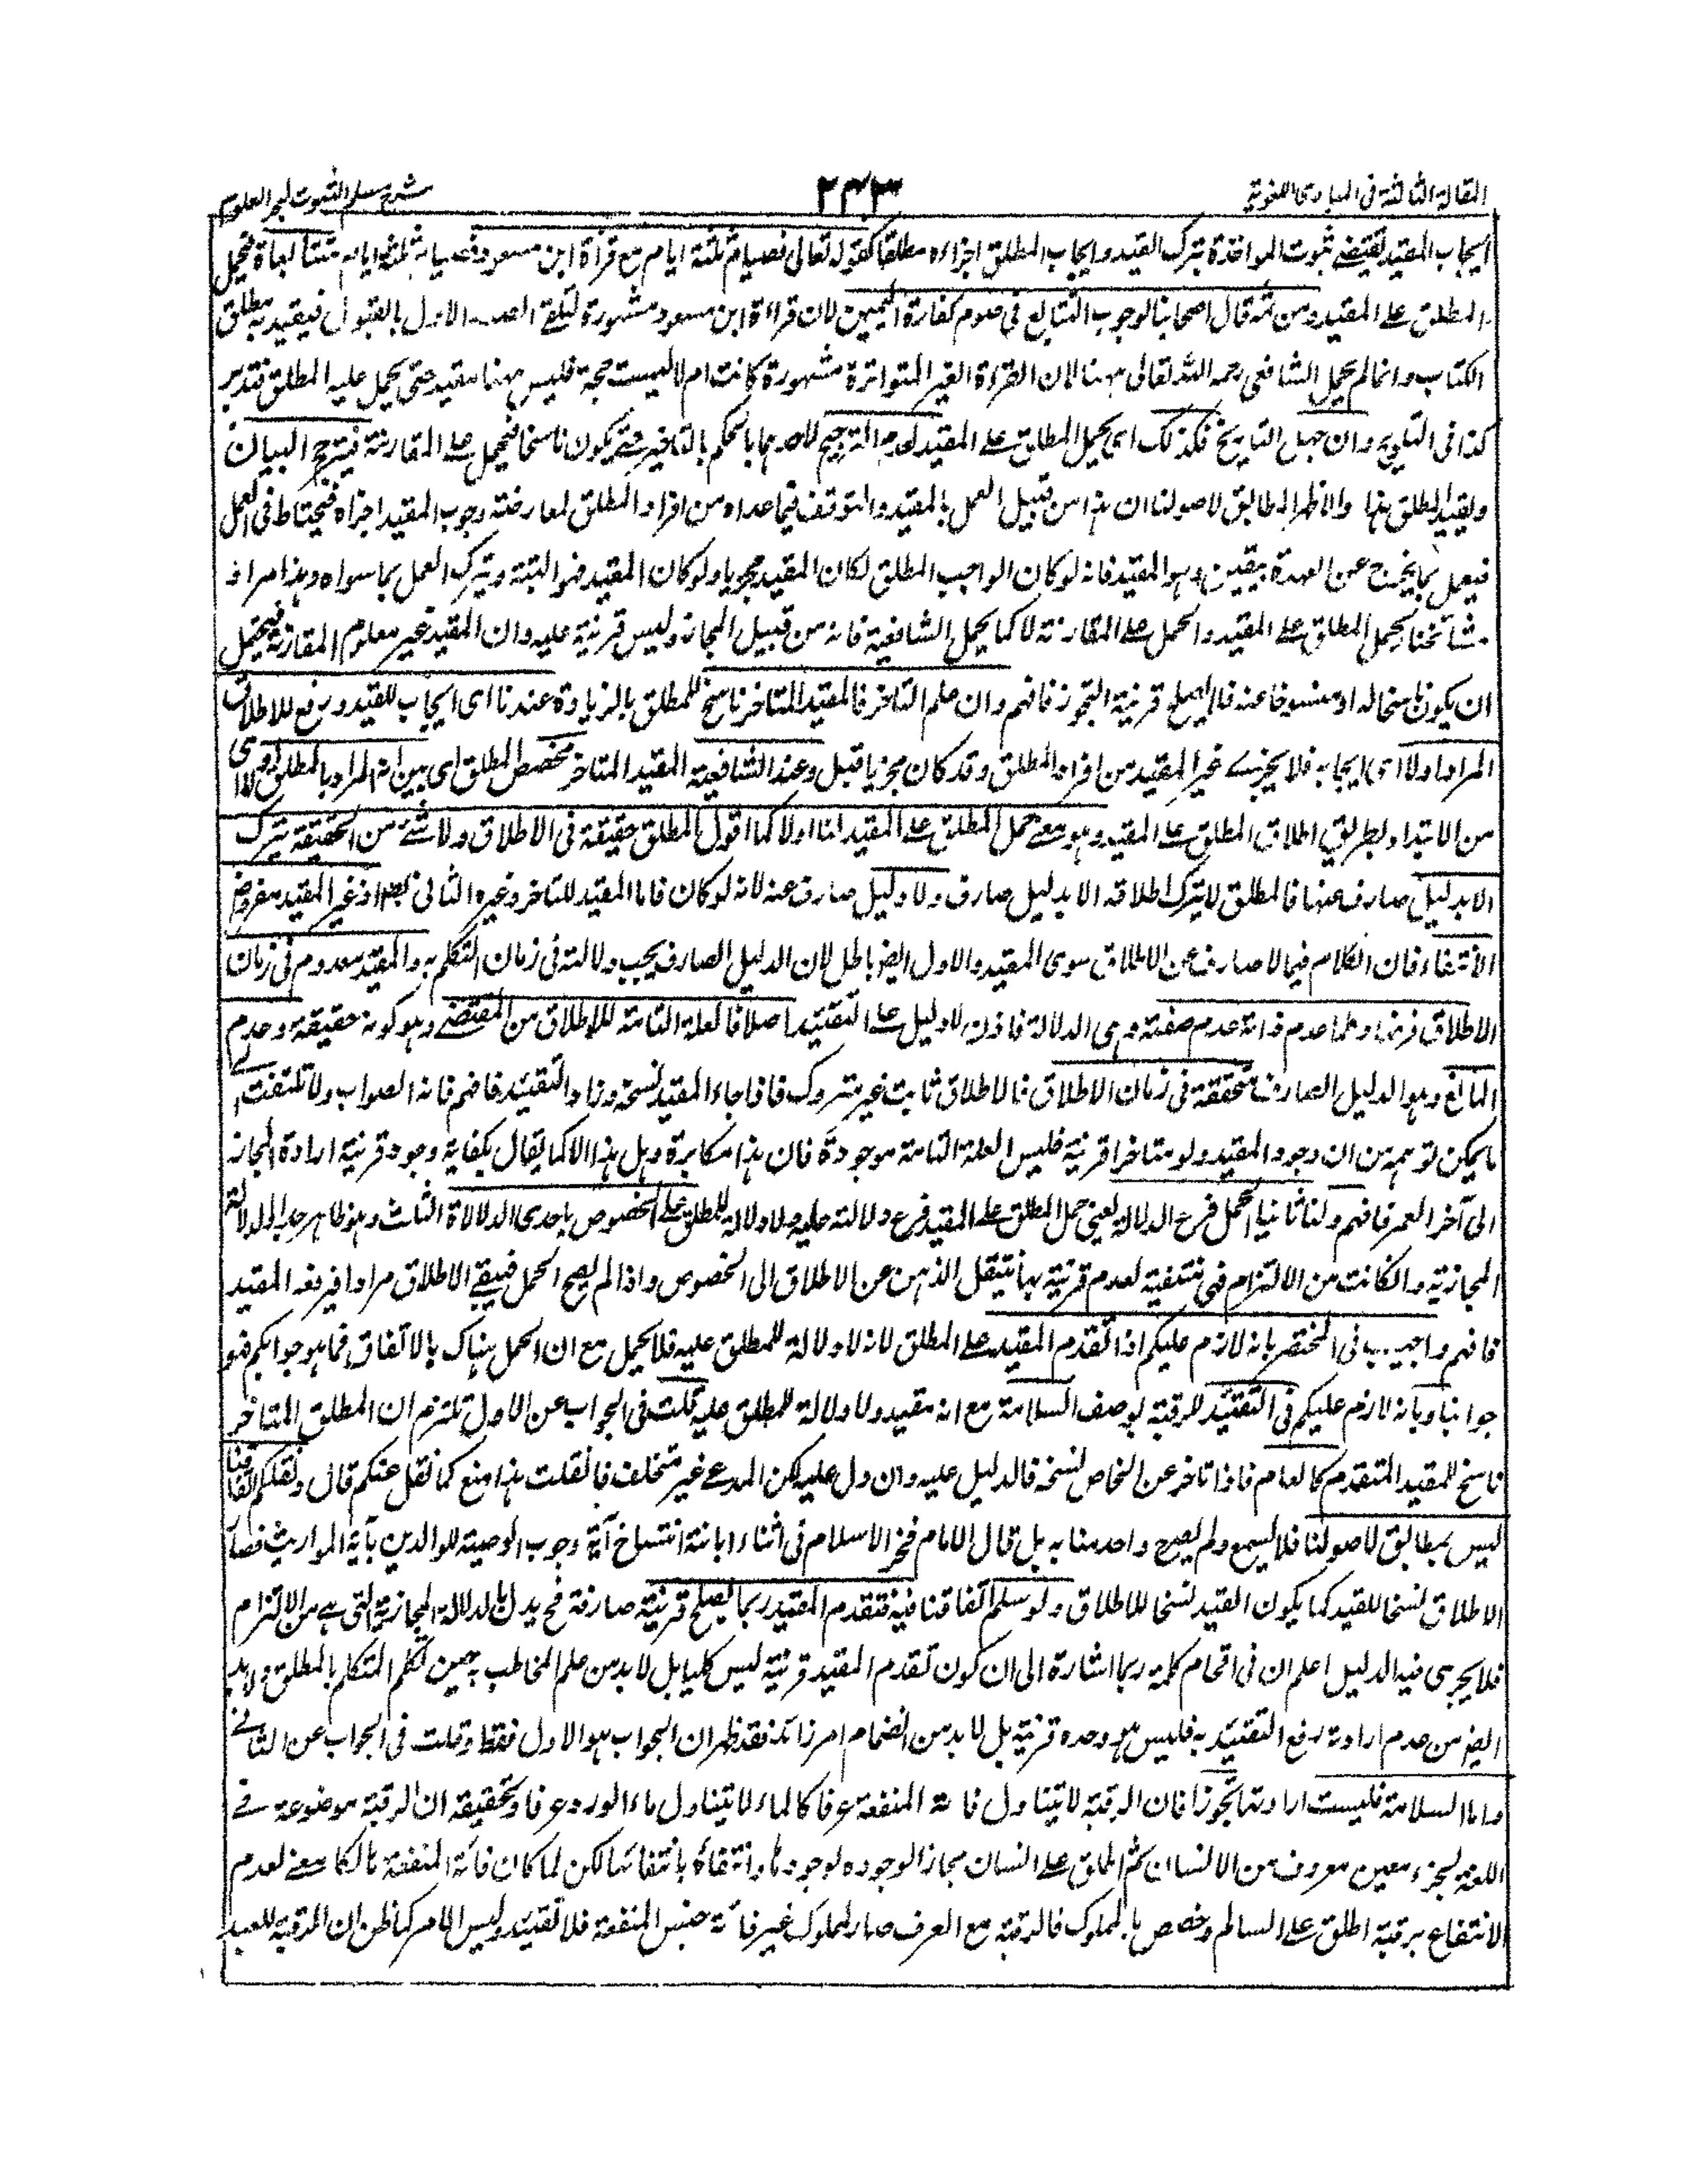 المقالة الثالثة فى المبادى اللغوية
٢٣٣
شرح مسلم الثبوت لبحر العلوم
ايجاب المقيد تقتضے ثبوت المواخذة بترك القيد وايجاب المطلق اجزاءه مطلقا كقوله تعالى فصيام ثلثة ايام مع قرأة ابن مسعود فصيام ثلثة ايام متتابعات فيحمل
المطلق على المقيد ومن ثمه قال اصحابنا لوجوب التتابع فى صوم كفارة اليمين لان قراءة ابن مسعود مشهورة لتلقے الصدر الاول بالقبول فيقيد به مطلق
الكتاب وانما لم يحمل الشافعى رحمه الله تعالى ههنا لان القراءة الغير المتواترة مشهورة كانت ام لا ليست حجة فليس ههنا مقيد حتى يحمل عليه المطلق فتدبر
كذا فى التلويح وان جهل التاريخ فكذلك اى يحمل المطلق على المقيد لعدم الترجيح لاحدهما بالحكم بالتاخير حتے يكون ناسخا فيحمل على المقارنة فيترجح البيان
وتقييد المطلق هذا والاظهر المطابق لاصولنا ان هذا من قبيل العمل بالمقيد والتوقف فيما عداه من افراد المطلق لمعارضته وجوب المقيد اجزاءه فيحتاط فى العمل
فيعمل بما يخرج عن العهدة بيقين وهو المقيد فانه لو كان الواجب المطلق لكان المقيد مجزيا ولو كان المقيد فهو البتة ويترك العمل بما سواه وهذا مراد
مشائخنا بحمل المطلق على المقيد والحمل على المقارنة لا كما يحمل الشافعية فانه من قبيل المجاز وليس قرينة عليه وان المقيد غير معلوم المقارنة فيحتمل
ان يكون ناسخا له او منسوخا عنه فلا يصلح قرينة التجوز فافهم وان علم التاخر فالمقيد المتاخر ناسخ للمطلق بالزيادة عندنا اى ايجاب للقيد ورفع للاطلاق
المراد اولا اى ايجابه فلا يجزے غير المقيد من افراد المطلق وقد كان مجزيا قبل وعند الشافعية المقيد المتاخر مخصص للمطلق اى يبين ان المراد بالمطلق
من الابتداء بطريق اطلاق المطلق على المقيد وهو معنے حمل المطلق على المقيد لنا اولا كما اقول المطلق حقيقة فى الاطلاق ولا شئے من الحقيقة يترك
الا بدليل صارف عنها فالمطلق لا يترك اطلاقه الا بدليل صارف ولا دليل صارف عنه لانه لو كان فاما المقيد المتاخر وغيره الثانى اذ غير المقيد مفروض
الانتفاء فان الكلام فيما لا صارف عن الاطلاق سوى المقيد والاول ايضا باطل لان الدليل الصارف يجب دلالته فى زمان التكلم به والمقيد معدوم فى زمان
الاطلاق فرضا وكلما عدم ذاته عدم صفته وهى الدلالة فاذن لا دليل على التقييد اصلا فالعلة التامة للاطلاق من المقتضے وهو كونه حقيقة وعدم
المانع وهو الدليل الصارف متحققة فى زمان الاطلاق فالاطلاق ثابت غير متروك فاذا جاء المقيد نسخه وزاد التقييد فافهم فانه الصواب ولا تلتفت الے
ما يمكن توهمه من ان وجود المقيد ولو متاخرا قرينة فليس العلة التامة موجودة فان هذا مكابرة وهل هذا الا كما يقال بكفاية وجود قرينة ارادة المجاز
الى آخر العمر فافهم ولنا ثانيا الحمل فرع الدلالة يعنى حمل المطلق على المقيد فرع دلالته عليه ولا دلالة للمطلق على الخصوص باحدى الدلالات الثلث وهو ظاهر جدا والدلالة
المجازية وان كانت من الالتزام فهى منتفية لعدم قرينة بها ينتقل الذهن عن الاطلاق الى الخصوص واذا لم يصح الحمل فيبقے الاطلاق مرادا فيرفعه المقيد
فافهم واجيب فى المختصر بانه لازم عليكم اذا تقدم المقيد على المطلق لانه لا دلالة للمطلق عليه فلا يحمل مع ان الحمل هناك بالاتفاق فما هو جوابكم فهو
جوابنا وبانه لازم عليكم فى التقييد للرقبة بوصف السلامة مع انه مقيد ولا دلالة للمطلق عليه قلت فى الجواب عن الاول نلتزم ان المطلق المتاخر
ناسخ للمقيد المتقدم كالعام فاذا تاخر عن الخاص نسخه فالدليل عليه وان دل عليه لكن المدعے غير متخلف فان قلت هذا منع كما نقل عنكم قال ونقلكم اتفاقنا
ليس بمطابق لاصولنا فلا يسمع ولم يصرح واحد منا به بل قال الامام فخر الاسلام فى اثناء ابانة انتساخ آية وجوب الوصية للوالدين بآية المواريث فصار
الاطلاق نسخا للقيد كما يكون القيد نسخا للاطلاق ولو سلم اتفاقنا فيه فتقدم المقيد ربما يصلح قرينة صارفة فح يدل بالدلالة المجازية التى هے من الالتزام
فلا يجرى فيه الدليل اعلم ان فى اقحام كلمة ربما اشارة الى ان كون تقدم المقيد قرينة ليس كليا بل لا بد من علم المخاطب به حين تكلم المتكلم بالمطلق ولا بد
ايضا من عدم ارادة رفع التقييد به فليس هو وحده قرينة بل لا بد من انضمام امر زائد فقد ظهر ان الجواب هو الاول فقط وقلت فى الجواب عن الثانے
واما السلامة فليست ارادتها تجوزا فان الرقبة لا يتناول فائتة المنفعة عرفا كالماء لا يتناول ماء الورد عرفا وتحقيقه ان الرقبة موضوعة فے
اللغة لجزء معين معروف من الانسان ثم اطلق على انسان مجازا لوجوده لوجودها وانتفائه بانتفائها لكن لما كان فائتة المنفعة هالكا معنے لعدم
الانتفاع برقبة اطلق على السالم وخصص بالمملوك فالرقبة مع العرف صار لمملوك غير فائتة جنس المنفعة فلا تقييد وليس الامر كما ظن ان الرقبة للعبد